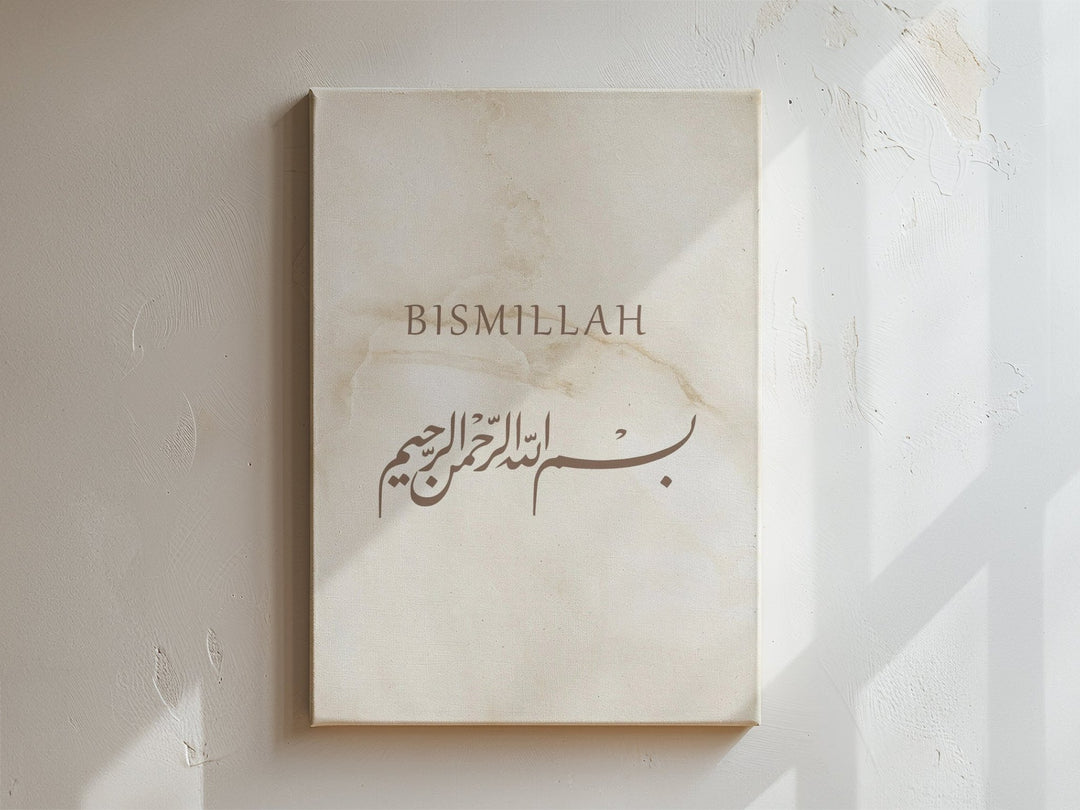 BISMILLAH
بسم الله الرحمن الرحيم